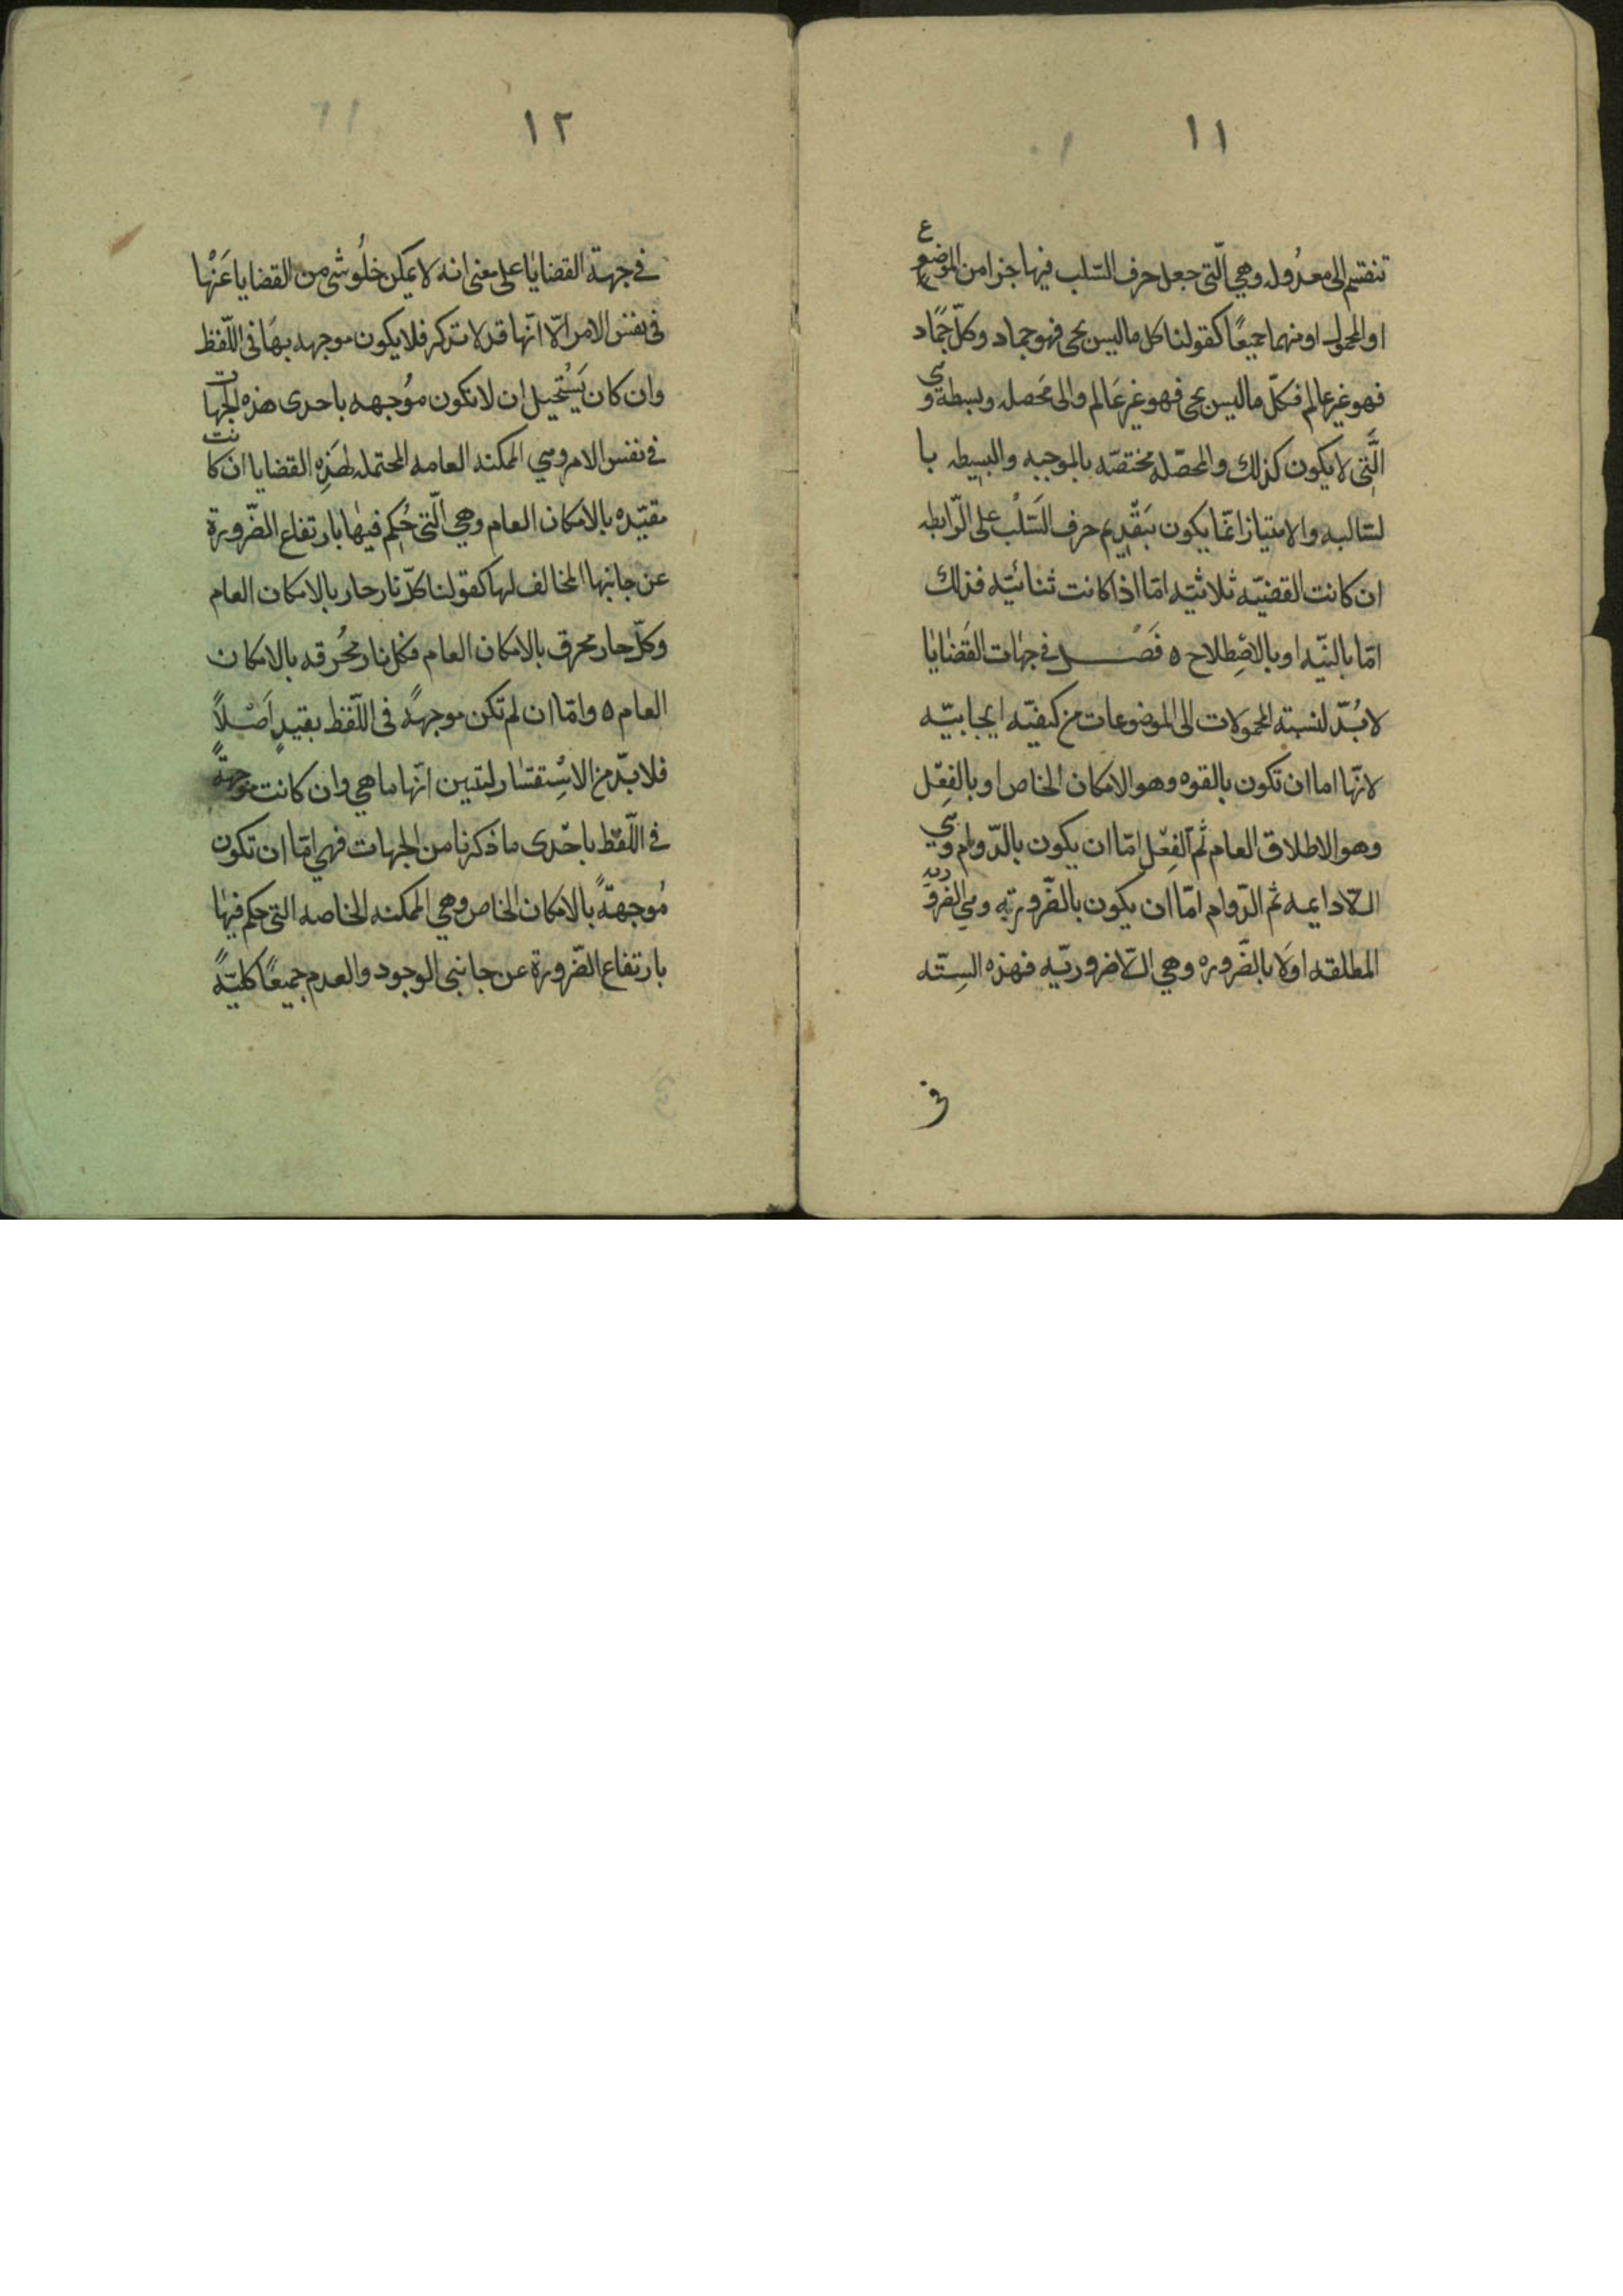 ١١
تنقسم الى معدُوله وهي الّتى جعل حرف السّلب فيها جزا من الموضوع
او المحمول او منهما جميعًا كقولنا كل ما ليس بحى فهو جماد وكلّ جمًاد
فهو غير عالم فكلّ ما ليس بحى فهو غير عَالم والى محَصله وبسيطة وهي
الَّتِى لا يكون كذلك والمحصّله مختصّه بالموجبه والبسيطه با
لسّالبه والامتياز انمّا يكون بَتقْدِيم حرف السَّلْب على الرّابطه
ان كانت القضيّه ثلاثيّه امّا اذا كانت ثنائيّه فذلك
امّا بالنيّه او بالاصْطِلاح ه فَصْــــل في جهَات القَضَايَا
لا بُدّ لنسبة المحمولات الى الموضوعات من كيفيّه ايجابيّه
لانّها اما ان تكون بالقوه وهو الامكان الخاص او بالفِعْل
وهو الاطلاق العام ثُم الفِعْل امّا ان يكون بالدّوام وهي
الـلّادايمه ثم الدّوام امّا ان يكون بالضّرورتِه وهي الضرو ريه
المطلقه اولَا بالضَّروره وهي الـلّاضروريّه فهذه السِتّه
فى
١٢
في جهة القضايَا على معنى انه لا يمكن خلُو شى من القضايا عَنْها
فى نفس الامر الّا انّها قد لا تذكر فلا يكون موجهه بهَا فى اللّفظ
وان كان يَسْتحيل ان لا تكون مُوجهه باحدى هذه الجهات
في نفس الامر وهي الممكنه العامه المحتمله لهَذِه القضايا ان كانت
مقيّده بالامكان العام وهي الّتى حُكِم فيهَا بارتفاع الضّرورة
عن جانبها المخالف لها كقولنا كلّ نار حار بالامكان العام
وكلّ حار محرق بالامكان العام فكل نار محُرقه بالامكان
العام ه وامّا ان لم تكن موجهةً فى اللّفظ بقيدٍ اَصْلاً
فلا بدّ من الاسْتِفسَار ليتبين انّها ما هي وان كانت موجهةً
في اللّفظ باحْدى ما ذكرنا من الجهات فهي امّا ان تكون
مُوجهةً بالامكان الخاص وهي الممكنه الخاصه التى حكم فيهَا
بارتفاع الضّرورة عن جانبى الوجود والعدم جميعًا كليّةً